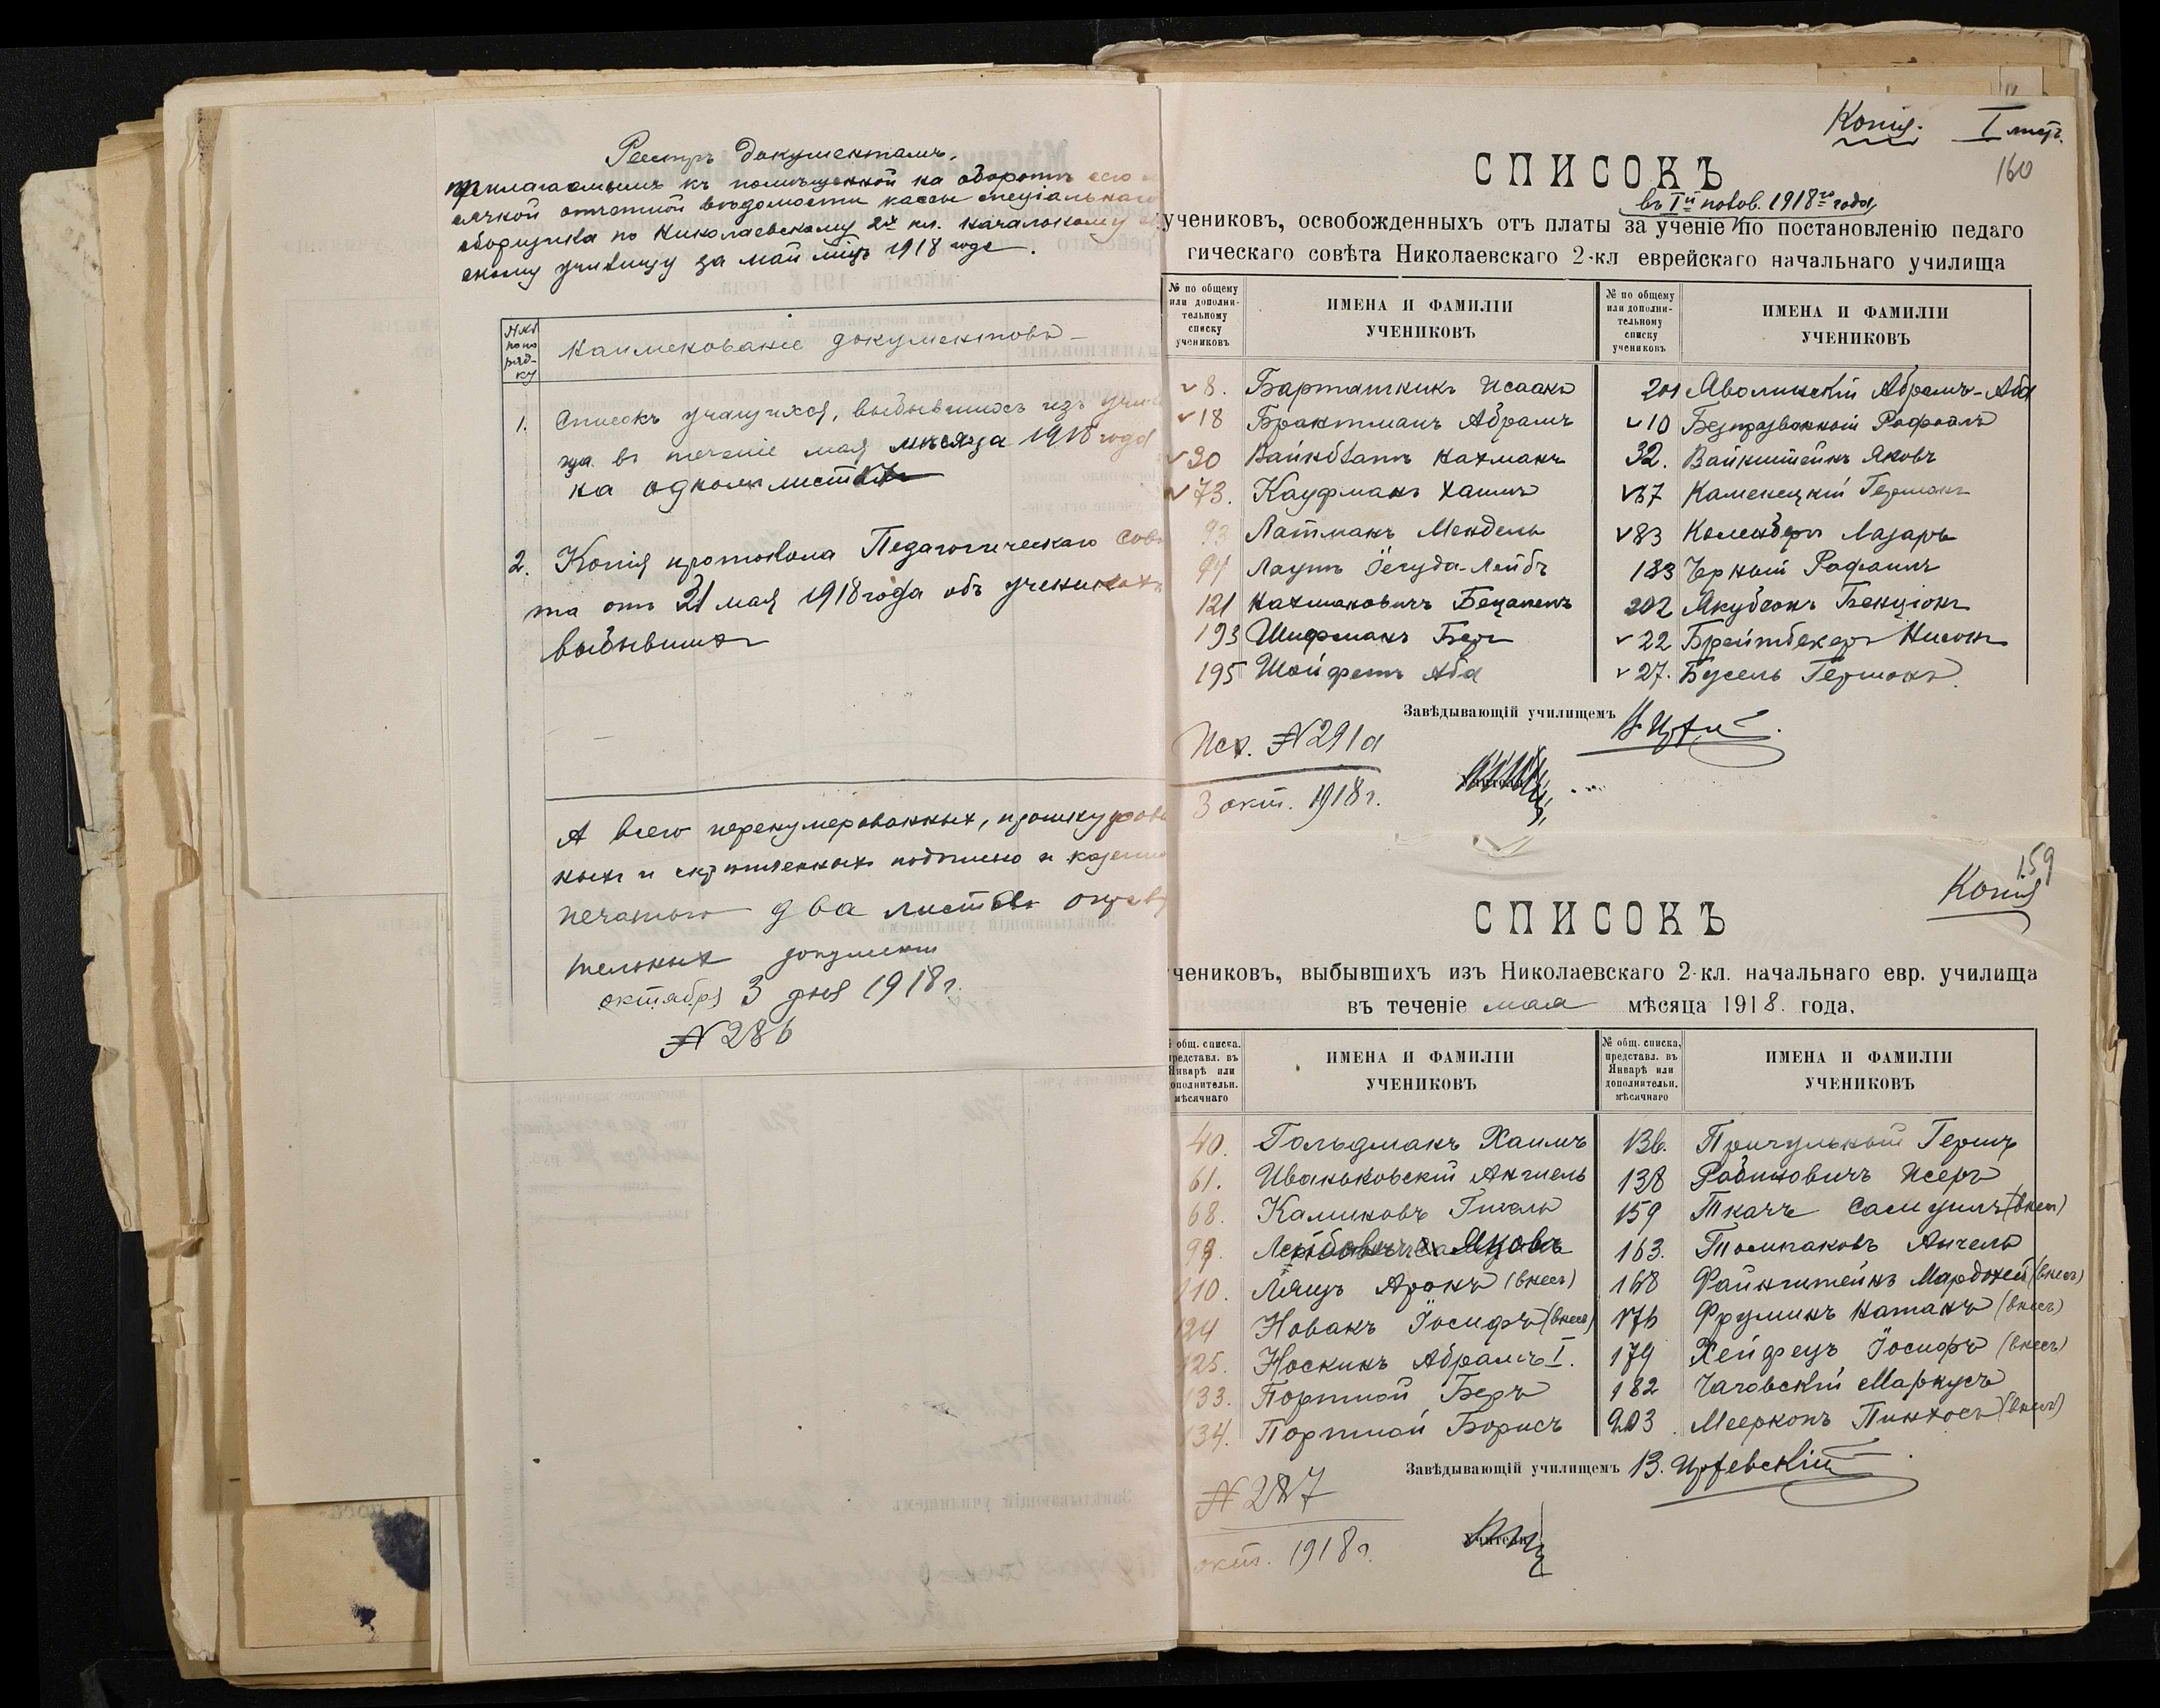 Реестръ документамъ,
прилагаемымъ къ помѣщенной на оборотѣ сего
сячной отчетной вѣдомости кассы спеціальнаго
сборщика по Николаевскому 2х кл. начальному
скому училищу за май мѣсц 1918 года.
№№ по по ряд-ку
Наименованіе документовъ
1. Списокъ учащихся, выбывшихъ изъ
ща въ теченіе мая мѣсяца 1918 года
на одномъ листѣ
2. Копія протокола Педагогическаго Совѣ
та отъ 31 мая 1918 года объ ученикахъ
выбывшихъ
А всего перенумерованныхъ, прошнурован
ныхъ и скрѣпленныхъ подписью и казенной
печатью два листа оправ
тельныхъ документ
октября 3 дня 1918 г.
№ 286
Копія. I листъ.
160
СПИСОКЪ
въ Iй полов. 1918го года,
учениковъ, освобожденныхъ отъ платы за ученіе по постановленію педаго
гическаго совѣта Николаевскаго 2-кл еврейскаго начальнаго училища
№ по общему или дополни-тельному списку учениковъ
ИМЕНА И ФАМИЛІИ УЧЕНИКОВЪ
№ по общему или дополни-тельному списку учениковъ
ИМЕНА И ФАМИЛІИ УЧЕНИКОВЪ
8. Барташникъ Исаакъ
18 Брактманъ Абрамъ
30 Вайнблатъ Нахманъ
73. Кауфманъ Хаимъ
93 Латманъ Мендель
94 Лаутъ Іегуда-Лейбъ
121 Нахмановичъ Бецалель
193 Шифманъ Беръ
195 Шойфетъ Аба
201 Яволинскій Абрамъ-Аба
10 Безпрозванный Рафаилъ
32. Вайнштейнъ Яковъ
67 Каменецкій Германъ
83 Коленберъ Лазарь
183 Черный Рафаилъ
202 Якубсонъ Бенціонъ
22 Брейтбекеръ Нисонъ
27. Бусель Германъ
Завѣдывающій училищемъ
Исх. № 291а
3 окт. 1918 г.
159
Копія
СПИСОКЪ
чениковъ, выбывшихъ изъ Николаевскаго 2-кл. начальнаго евр. училища
въ теченіе мая мѣсяца 1918. года.
общ. списка. представл. въ Январѣ или дополнительн. мѣсячнаго
ИМЕНА И ФАМИЛІИ УЧЕНИКОВЪ
№ общ. списка, представл. въ Январѣ или дополнительн. мѣсячнаго
ИМЕНА И ФАМИЛІИ УЧЕНИКОВЪ
40. Гольдманъ Хаимъ
61. Иваньковскій Анчель
68. Калиновъ Гилель
99. Яковъ
110. Лящъ Аронъ (внесъ)
124 Новакъ Іосифъ (внесъ)
125. Носкинъ Абрамъ I.
133. Портной Беръ
134. Портной Борисъ
136. Причульный Гершъ
138 Рабиновичъ Исеръ
159 Ткачъ Самуилъ (внесъ)
163. Толмаковъ Анчель
168 Файнштейнъ Мардохей (внесъ)
176 Фруминъ Натанъ (внесъ)
179 Хейфецъ Іосифъ (внесъ)
182 Чаговскій Маркусъ
203 Мееркопъ Пинхосъ (внесъ)
Завѣдывающій училищемъ
№ 287
окт. 1918 г.